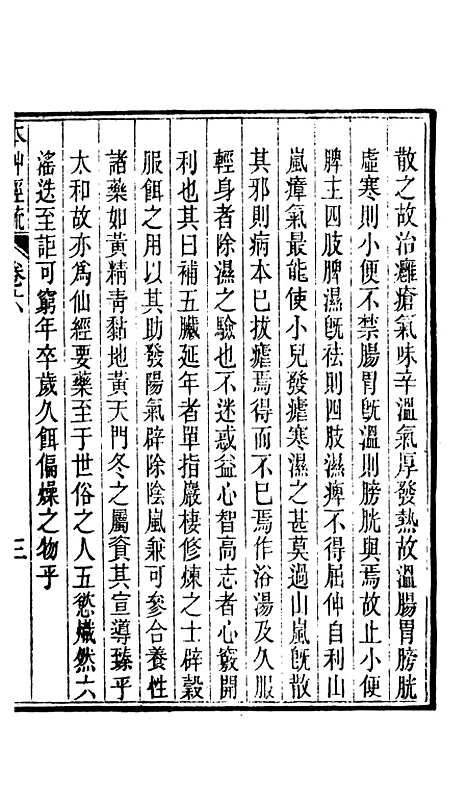 散之故治癰瘡氣味辛溫氣厚發熱故溫腸胃膀胱
虛寒則小便不禁腸胃旣溫則膀胱與焉故止小便
脾主四肢脾濕旣祛則四肢濕痺不得屈伸自利山
嵐瘴氣最能使小兒發瘧寒濕之甚莫過山嵐旣散
其邪則病本已拔瘧焉得而不已焉作浴湯及久服
輕身者除濕之驗也不迷惑益心智高志者心竅開
利也其曰補五臟延年者單指巖棲修煉之士辟穀
服餌之用以其助發陽氣辟除陰嵐兼可參合養性
諸藥如黃精青黏地黃天門冬之屬資其宣導臻乎
太和故亦爲仙經要藥至于世俗之人五慾熾然六
滛迭至詎可窮年卒歲久餌偏燥之物乎
本艸經疏
卷六
三